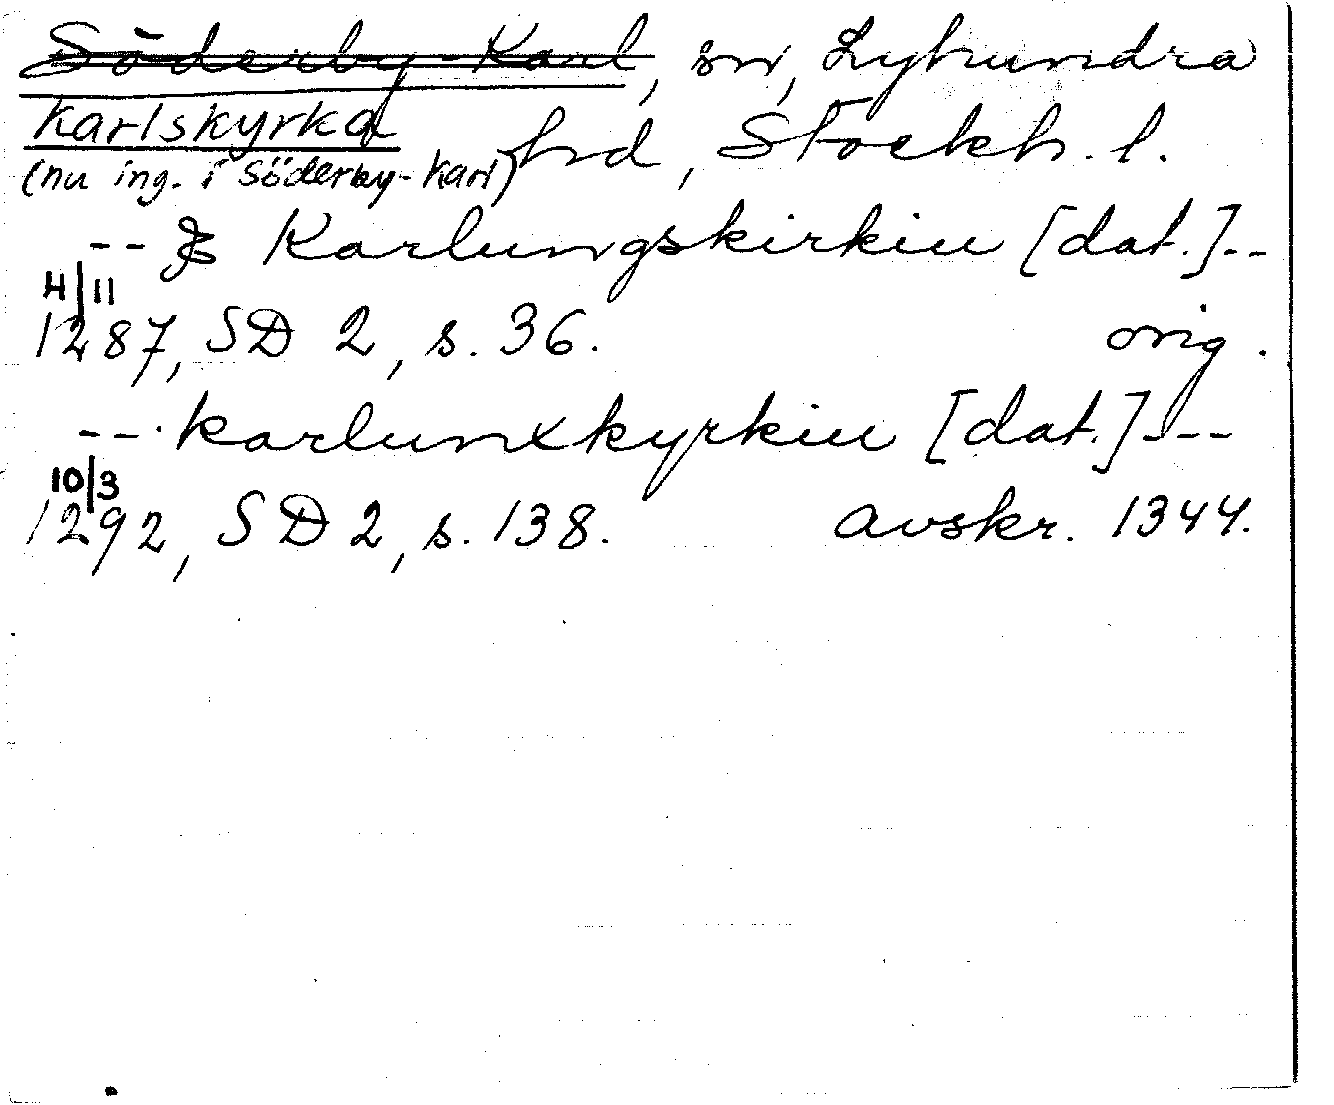 Söderby-Karl, sn, Lyhundra
Karlskyrka hd, Stockh. l.
(nu ing. i Söderby-Karl)
-- Karlungskirkiu [dat.]--
4/11
1287, SD 2, s. 36. orig.
--. karlunxkyrkiu [dat.]---
10/3
1292, SD 2, s. 138. avskr. 1344.